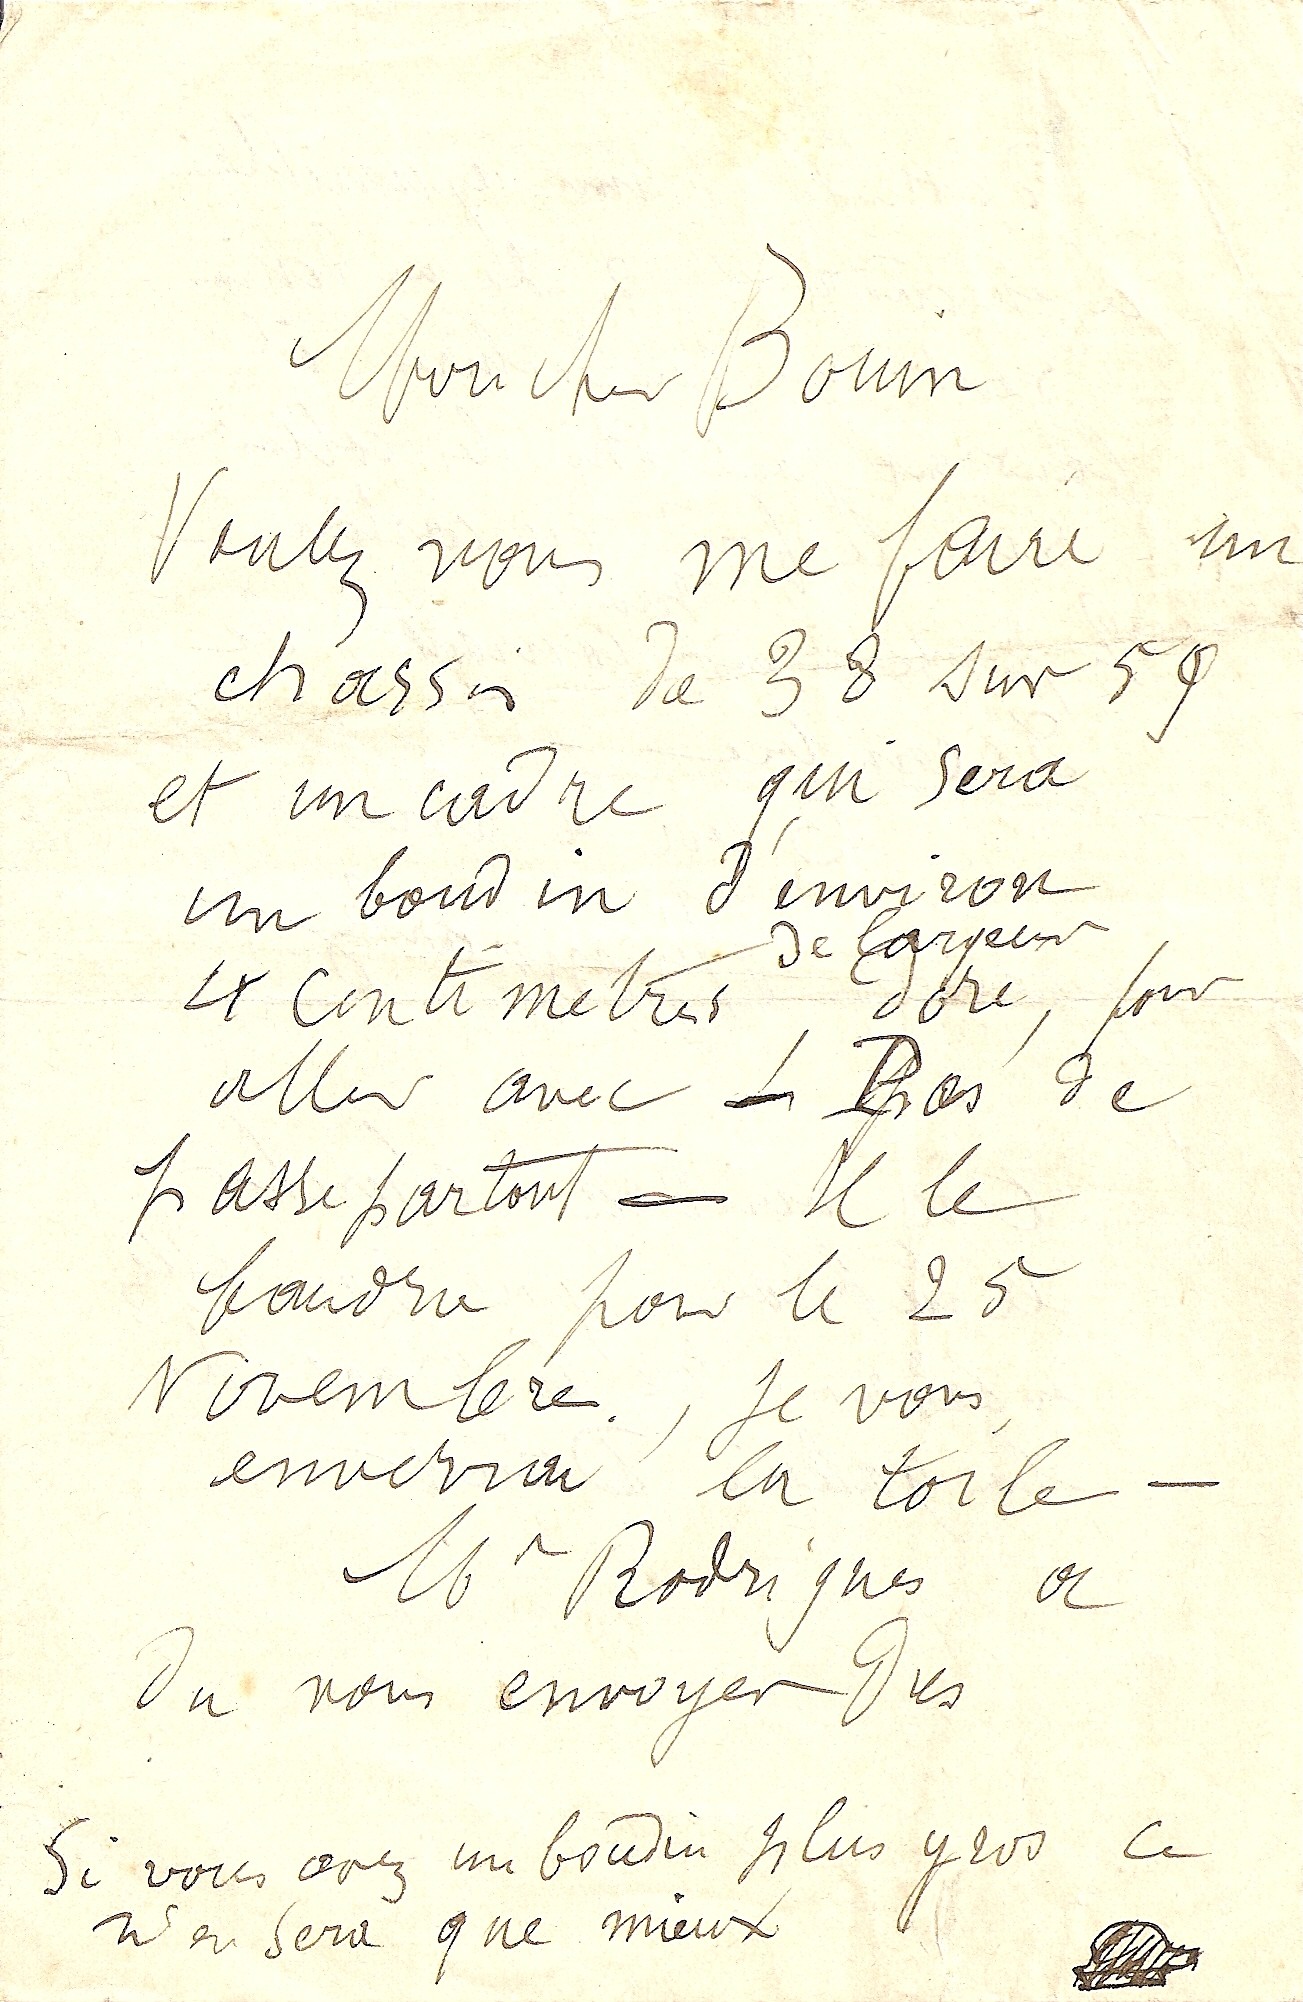 Mon cher Bouin
Voulez vous me faire un
chassis de 38 sur 59
et un cadre qui sera
un boudin d'environ
de largeur
4 Centimetres, doré, pour
aller avec — Pas de
passe partout — Il le
faudra pour le 25
Novembre, je vous
enverrai la toile —
Mr Rodrigues a
du vous envoyer des
Si vous avez un boudin plus gros ce
n'en sera que mieux